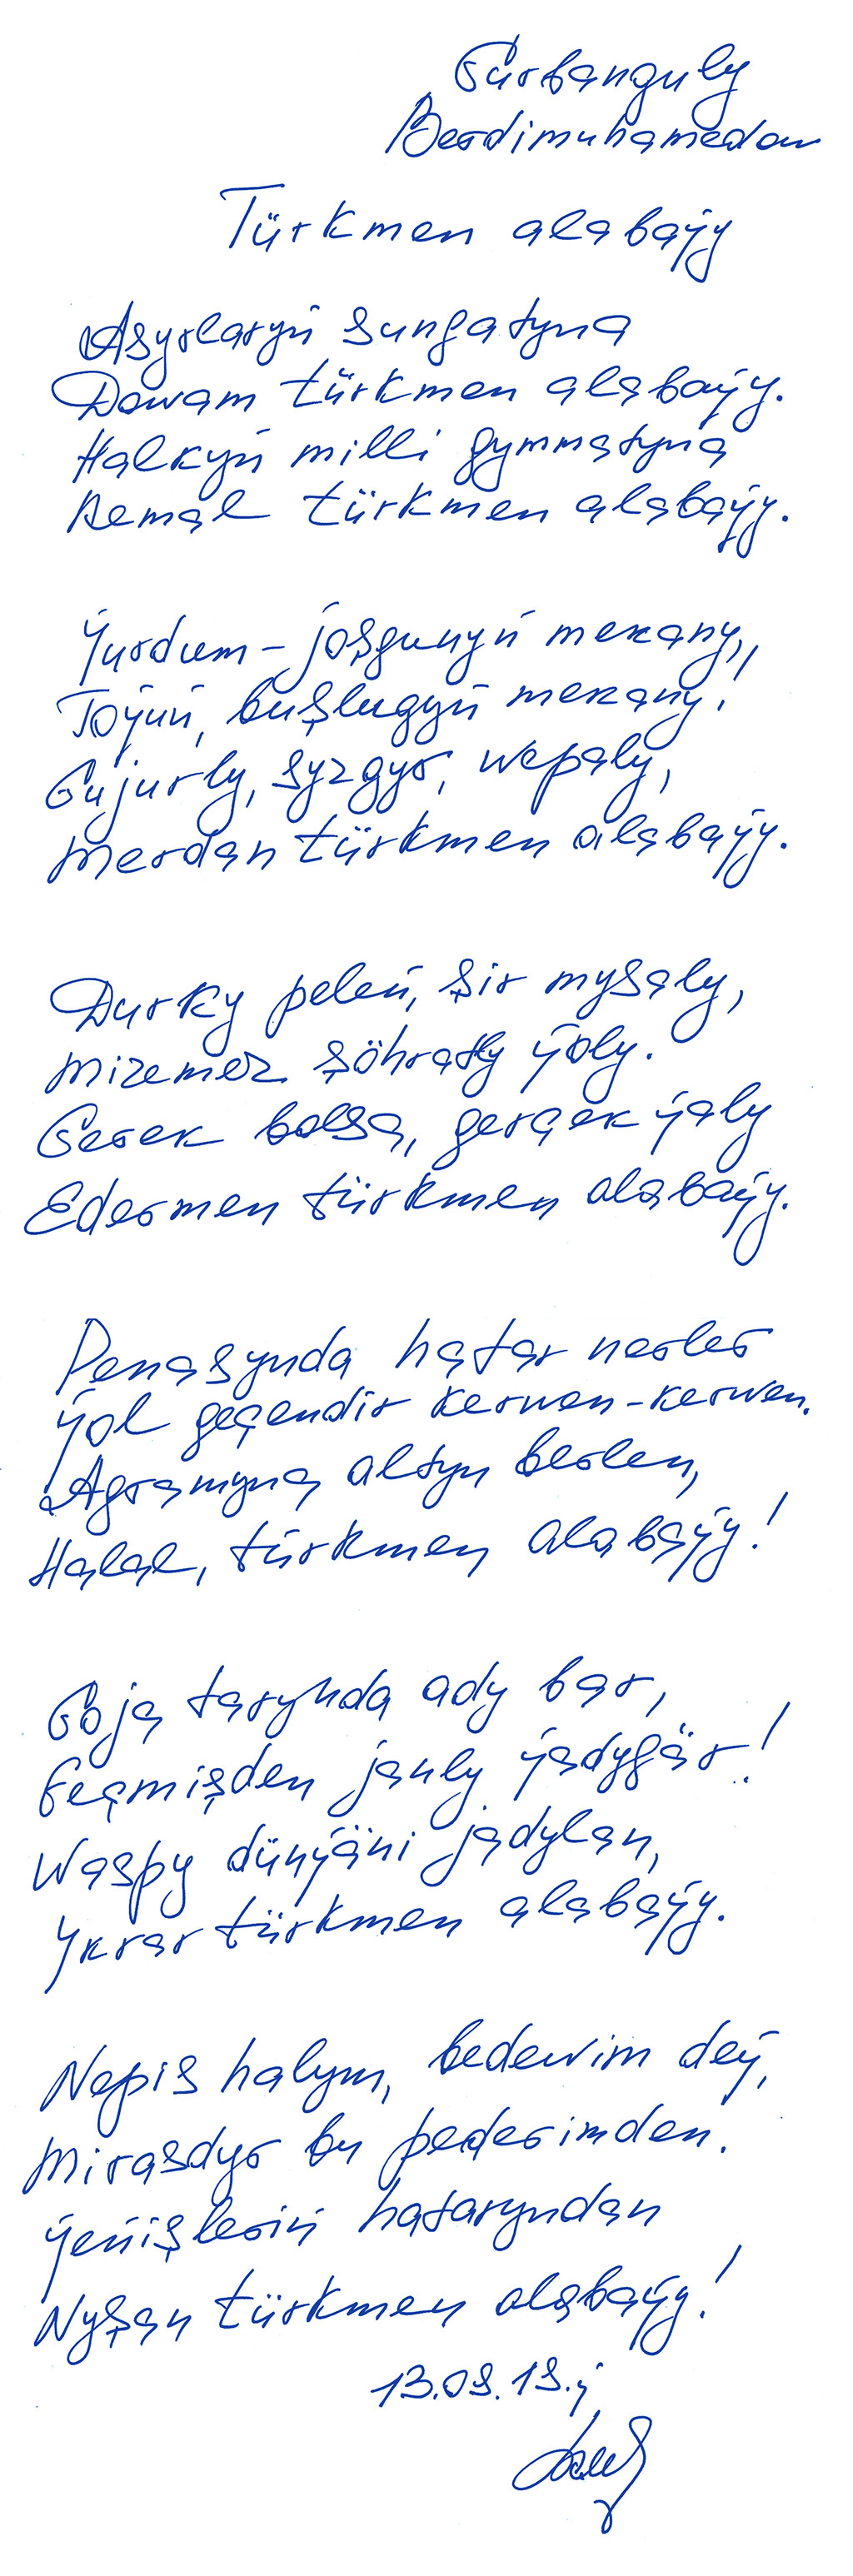 Gurbanguly
Berdimuhamedow
Türkmen alabaýy
Asyrlaryň sungatyna
Dowam türkmen alabaýy.
Halkyň milli gymmatyna
Kemal türkmen alabaýy.
Ýurdum – joşgunyň mekany,
Toýuň, buşlugyň mekany!
Gujurly, syzgyr, wepaly,
Merdan türkmen alabaýy.
Durky peleň, şir mysaly,
Mizemez şöhratly ýoly.
Gerek bolsa, gerçek ýaly
Edermen türkmen alabaýy.
Penasynda hatar nerler
Ýol geçendir kerwen-kerwen.
Agramyna altyn berlen,
Halal, türkmen alabaýy!
Goja taryhda ady bar,
Geçmişden janly ýadygär!
Waspy dünýäni jadylan,
Ykrar türkmen alabaýy.
Nepis halym, bedewim deý,
Mirasdyr bu pederimden.
Ýeňişleriň hataryndan
Nyşan türkmen alabaýy!
13.09.19.ý